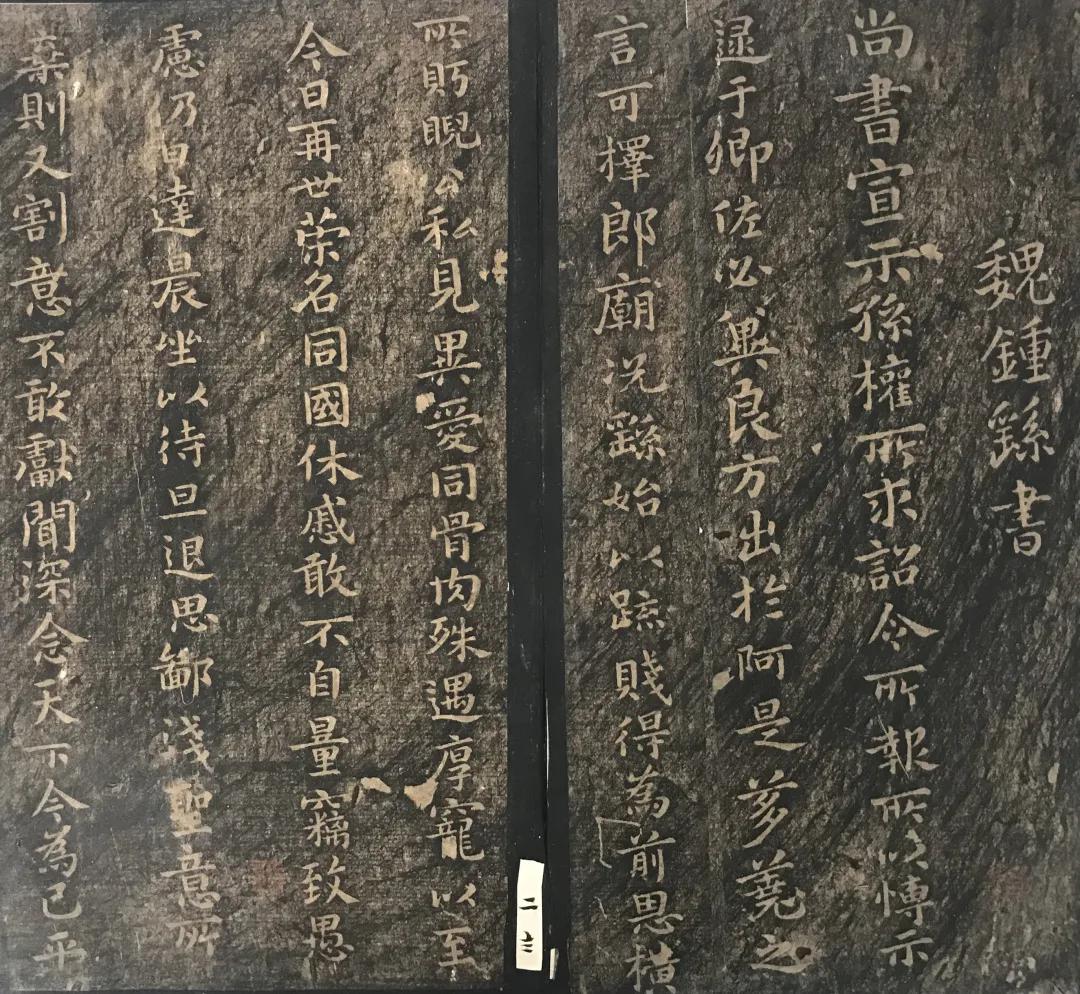 魏鍾繇書
尚書宣示孫權所求詔令所報所以博示
逮于卿佐必冀良方出於阿是芻蕘之
言可擇郎廟況繇始以疏賤得為前恩橫
所眄睨公私見異愛同骨肉殊遇厚寵以至
今日再世荣名同國休慼敢不自量竊致愚
慮仍日達晨坐以待旦退思鄙淺聖意所
棄則又割意不敢獻聞深念天下今為已平
二 三